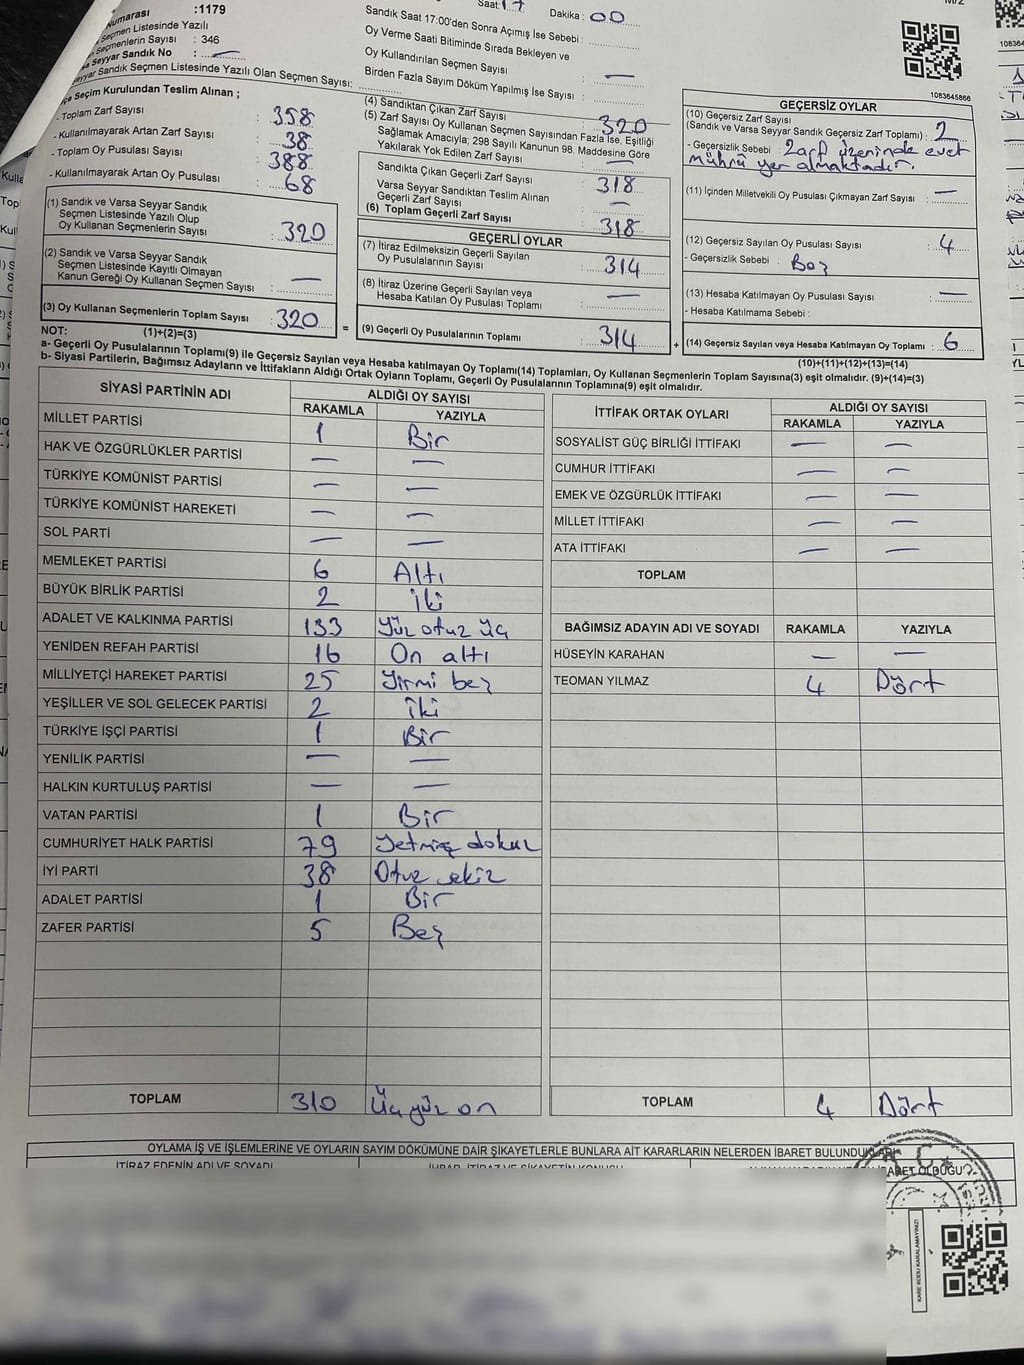 Numarası :1179
Seçmen Listesinde Yazılı
Seçmenlerin Sayısı : 346
Seyyar Sandık No : —
Seyyar Sandık Seçmen Listesinde Yazılı Olan Seçmen Sayısı:
Seçim Kurulundan Teslim Alınan ;
- Toplam Zarf Sayısı : 358
- Kullanılmayarak Artan Zarf Sayısı : 38
- Toplam Oy Pusulası Sayısı : 388
- Kullanılmayarak Artan Oy Pusulası : 68
(1) Sandık ve Varsa Seyyar Sandık
Seçmen Listesinde Yazılı Olup
Oy Kullanan Seçmenlerin Sayısı : 320
(2) Sandık ve Varsa Seyyar Sandık
Seçmen Listesinde Kayıtlı Olmayan
Kanun Gereği Oy Kullanan Seçmen Sayısı : —
(3) Oy Kullanan Seçmenlerin Toplam Sayısı : 320
Saat: 17 Dakika : 00
Sandık Saat 17:00'den Sonra Açımış İse Sebebi :
Oy Verme Saati Bitiminde Sırada Bekleyen ve
Oy Kullandırılan Seçmen Sayısı : —
Birden Fazla Sayım Döküm Yapılmış İse Sayısı :
(4) Sandıktan Çıkan Zarf Sayısı : 320
(5) Zarf Sayısı Oy Kullanan Seçmen Sayısından Fazla İse, Eşitliği
Sağlamak Amacıyla; 298 Sayılı Kanunun 98. Maddesine Göre
Yakılarak Yok Edilen Zarf Sayısı : —
Sandıkta Çıkan Geçerli Zarf Sayısı : 318
Varsa Seyyar Sandıktan Teslim Alınan
Geçerli Zarf Sayısı : —
(6) Toplam Geçerli Zarf Sayısı : 318
GEÇERLİ OYLAR
(7) İtiraz Edilmeksizin Geçerli Sayılan
Oy Pusulalarının Sayısı : 314
(8) İtiraz Üzerine Geçerli Sayılan veya
Hesaba Katılan Oy Pusulası Toplamı : —
= (9) Geçerli Oy Pusulalarının Toplamı : 314 +
1083645866
GEÇERSİZ OYLAR
(10) Geçersiz Zarf Sayısı
(Sandık ve Varsa Seyyar Sandık Geçersiz Zarf Toplamı) : 2
- Geçersizlik Sebebi : Zarf üzerinde evet
mührü yer almaktadır.
(11) İçinden Milletvekili Oy Pusulası Çıkmayan Zarf Sayısı : —
(12) Geçersiz Sayılan Oy Pusulası Sayısı : 4
- Geçersizlik Sebebi : Boş
(13) Hesaba Katılmayan Oy Pusulası Sayısı : —
- Hesaba Katılmama Sebebi :
(14) Geçersiz Sayılan veya Hesaba Katılmayan Oy Toplamı : 6
NOT: (1)+(2)=(3)
(10)+(11)+(12)+(13)=(14)
a- Geçerli Oy Pusulalarının Toplamı(9) ile Geçersiz Sayılan veya Hesaba katılmayan Oy Toplamı(14) Toplamları, Oy Kullanan Seçmenlerin Toplam Sayısına(3) eşit olmalıdır. (9)+(14)=(3)
b- Siyasi Partilerin, Bağımsız Adayların ve İttifakların Aldığı Ortak Oyların Toplamı, Geçerli Oy Pusulalarının Toplamına(9) eşit olmalıdır.
SİYASİ PARTİNİN ADI ALDIĞI OY SAYISI
RAKAMLA YAZIYLA
MİLLET PARTİSİ 1 Bir
HAK VE ÖZGÜRLÜKLER PARTİSİ — —
TÜRKİYE KOMÜNİST PARTİSİ — —
TÜRKİYE KOMÜNİST HAREKETİ — —
SOL PARTİ — —
MEMLEKET PARTİSİ 6 Altı
BÜYÜK BİRLİK PARTİSİ 2 iki
ADALET VE KALKINMA PARTİSİ 133 Yüz otuz üç
YENİDEN REFAH PARTİSİ 16 On altı
MİLLİYETÇİ HAREKET PARTİSİ 25 Yirmi beş
YEŞİLLER VE SOL GELECEK PARTİSİ 2 iki
TÜRKİYE İŞÇİ PARTİSİ 1 Bir
YENİLİK PARTİSİ — —
HALKIN KURTULUŞ PARTİSİ — —
VATAN PARTİSİ 1 Bir
CUMHURİYET HALK PARTİSİ 79 Yetmiş dokuz
İYİ PARTİ 38 Otuz sekiz
ADALET PARTİSİ 1 Bir
ZAFER PARTİSİ 5 Beş
TOPLAM 310 Üç yüz on
İTTİFAK ORTAK OYLARI ALDIĞI OY SAYISI
RAKAMLA YAZIYLA
SOSYALİST GÜÇ BİRLİĞİ İTTİFAKI — —
CUMHUR İTTİFAKI — —
EMEK VE ÖZGÜRLÜK İTTİFAKI — —
MİLLET İTTİFAKI — —
ATA İTTİFAKI — —
TOPLAM
BAĞIMSIZ ADAYIN ADI VE SOYADI RAKAMLA YAZIYLA
HÜSEYİN KARAHAN — —
TEOMAN YILMAZ 4 Dört
TOPLAM 4 Dört
OYLAMA İŞ VE İŞLEMLERİNE VE OYLARIN SAYIM DÖKÜMÜNE DAİR ŞİKAYETLERLE BUNLARA AİT KARARLARIN NELERDEN İBARET BULUNDUKLARI
İTİRAZ EDENİN ADI VE SOYADI
KARE KODU KARALAMAYINIZ!